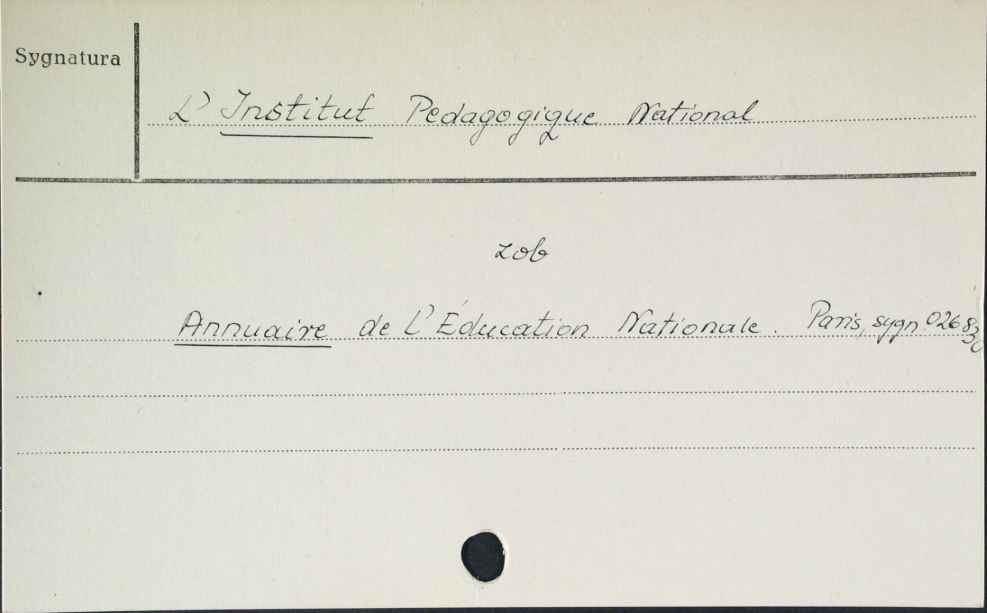 Sygnatura
L' Institut Pedagogique National
zob
Annuaire de L'Éducation Nationale. Paris, sygn 026830